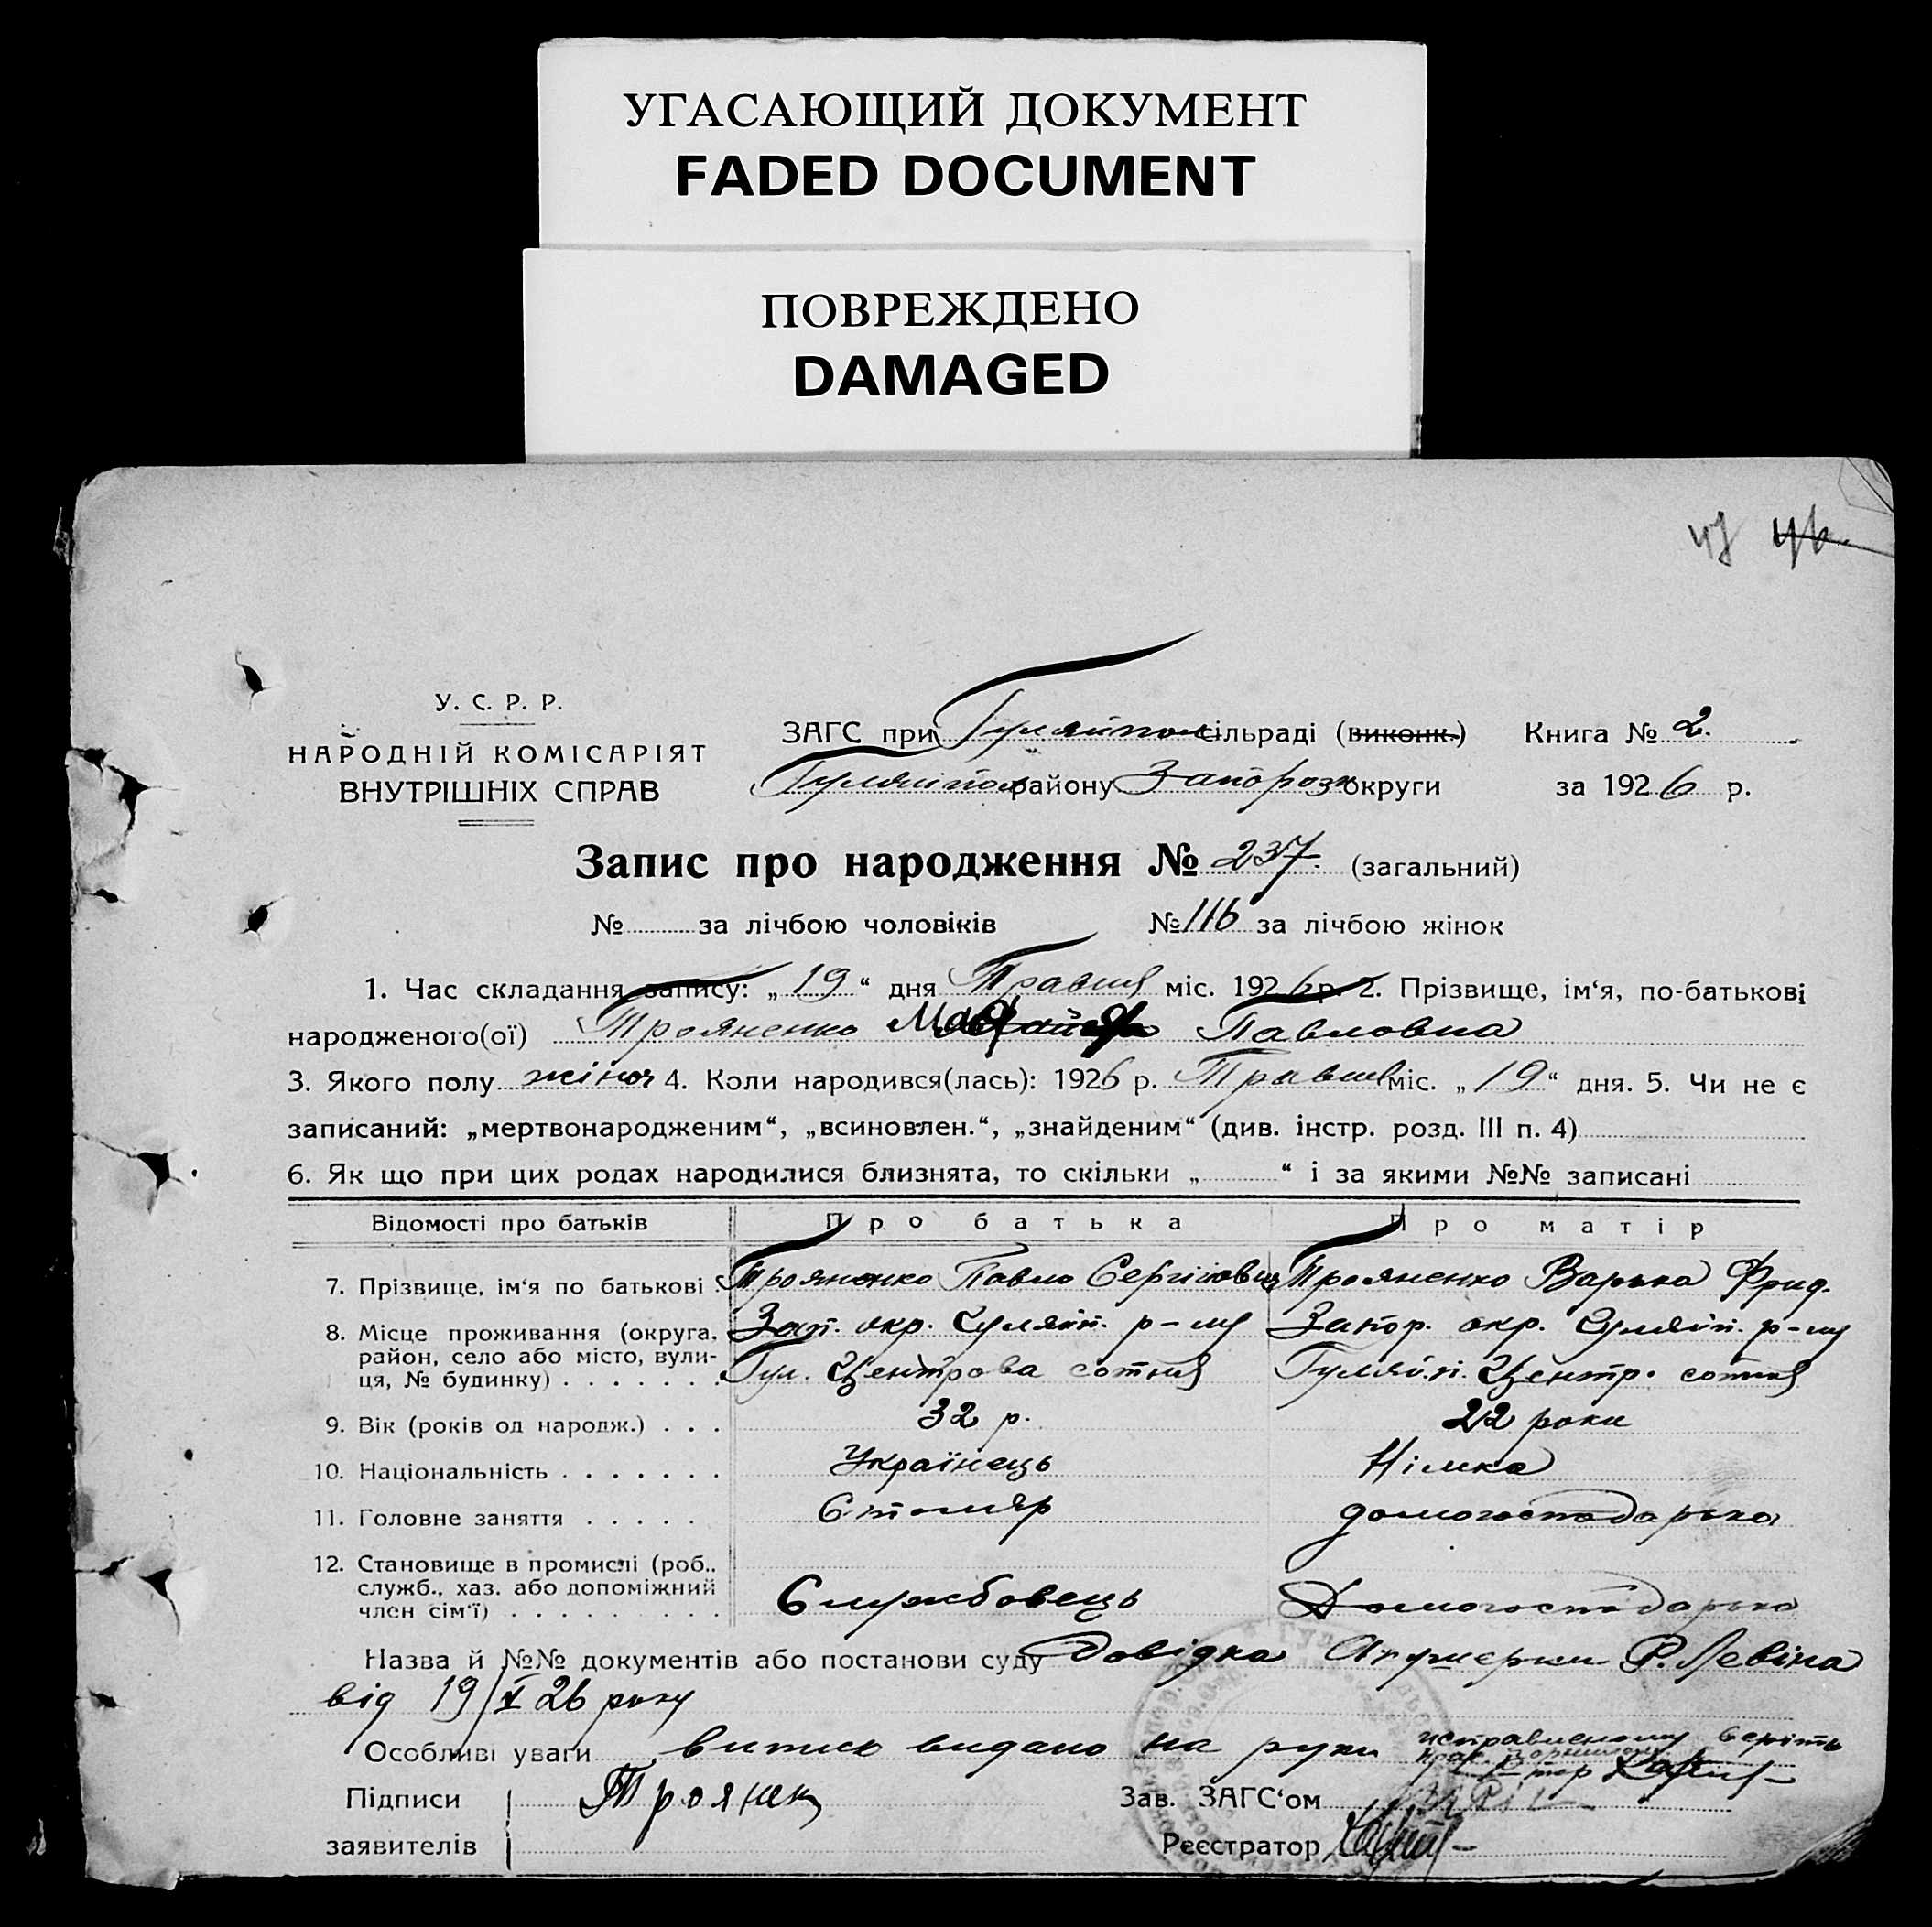 УГАСАЮЩИЙ ДОКУМЕНТ
FADED DOCUMENT
ПОВРЕЖДЕНО
DAMAGED
У. С. Р. Р.
НАРОДНІЙ КОМІСАРІЯТ
ВНУТРІШНІХ СПРАВ
ЗАГС при Гуляйпол сільраді (виконк.) Книга № 2.
Гуляйпол району Запорозк округи за 1926 р.
Запис про народження № 237. (загальний)
№ за лічбою чоловіків № 116 за лічбою жінок
1. Час складання запису: „19“ дня Травня міс. 1926 р. 2. Прізвище, ім‘я, по-батькові
народженого(ої) Трояненко Павловна
3. Якого полу жіноч 4. Коли народився(лась): 1926 р. Травня міс. „19“ дня. 5. Чи не є
записаний: „мертвонародженим“, „всиновлен.“, „знайденим“ (див. інстр. розд. III п. 4)
6. Як що при цих родах народилися близнята, то скільки „ “ і за якими №№ записані
Відомості про батьків Про батька Про матір
7. Прізвище, ім‘я по батькові . Трояненко Павло Сергійович Трояненко Варька Фрид.
8. Місце проживання (округа, район, село або місто, вулиця, № будинку) . . . . . . .
Зап. окр. Гуляйп. р-ну Запор. окр. Гуляйп. р-ну
Гул. Центрова сотня Гуляй.п. Центр. сотня
9. Вік (років од народж.) . . . 32 р. 22 роки
10. Національність . . . . . . . Українець Німка
11. Головне заняття . . . . . Столяр домогосподарька
12. Становище в промислі (роб., служб., хаз. або допоміжний член сім‘ї) . . . . . . . . .
Службовець Домогосподарька
Назва й №№ документів або постанови суду Довідка Акушерки Р. Левіна
від 19/V 26 року
Особливі уваги витись видано на руки исправленому верить
Підписи Троянен Зав. ЗАГС‘ом
заявителів Реєстратор